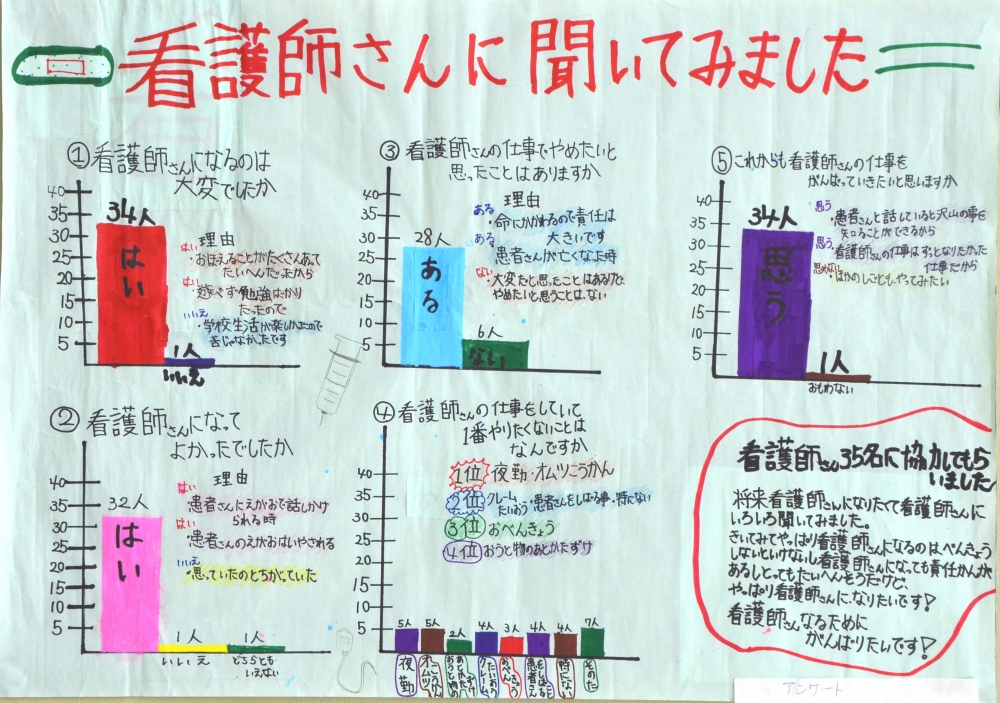 看護師さんに聞いてみました
①看護師さんになるのは
大変でしたか
40
35
30
25
20
15
10
5
34人
はい
1人
いいえ
理由
はい
・おぼえることがたくさんあって
たいへんだったから
はい
・遊べず勉強ばかり
だったので
いいえ
・学校生活が楽しかったので
苦じゃなかったです
②看護師さんになって
よかったでしたか
40
35
30
25
20
15
10
5
32人
はい
1人
いいえ
1人
どちらとも
いえない
理由
はい
・患者さんにえがおで話しかけ
られる時
はい
・患者さんのえがおはいやされる
いいえ
・思っていたのとちがっていた
③看護師さんの仕事でやめたいと
思ったことはありますか
40
35
30
25
20
15
10
5
28人
ある
6人
ない
理由
ある
・命にかかわるので責任は
大きいです
ある
患者さんが亡くなった時
ない
・大変だと思ったことはあるけど
やめたいと思うことは、ない
④看護師さんの仕事をしていて
1番やりたくないことは
なんですか
1位 夜勤・オムツこうかん
2位 クレーム
たいおう・患者さんをしばる事・特にない
3位 おべんきょう
4位 おうと物のあとかたずけ
40
35
30
25
20
15
10
5
5人 5人 2人 4人 3人 4人 4人 7人
夜勤
オムツこうかん
おうと物の
あとかたずけ
クレーム
たいおう
おべんきょう
患者さんをしばること
特にない
そのた
⑤これからも看護師さんの仕事を
がんばっていきたいと思いますか
40
35
30
25
20
15
10
5
34人
思う
1人
おもわない
思う
・患者さんと話していると沢山の事を
知ることができるから
思う
・看護師さんの仕事はずっとなりたかった
仕事だから
思わない
・ほかのしごともやってみたい
看護師さん35名に協力してもら
いました
将来看護師さんになりたくて看護師さんに
いろいろ聞いてみました。
きいてみてやっぱり看護師さんになるのはべんきょう
しないといけないし看護師さんになっても責任かんが
あるしとってもたいへんそうだけど、
やっぱり看護師さんになりたいです!
看護師さんなるために
がんばりたいです!
アンケート